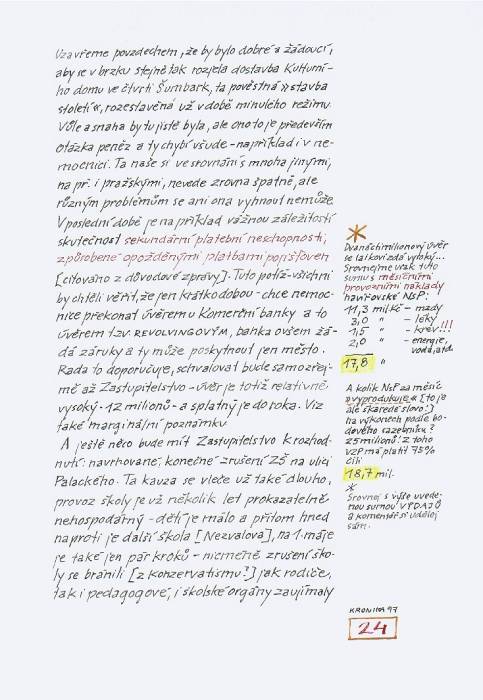 Uzavřeme povzdechem, že by bylo dobré a žádoucí,
aby se v brzku stejně tak rozjela dostavba Kulturní-
ho domu ve čtvrti Šumbark, ta pověstná »stavba
století«, rozestavěná už v době minulého režimu.
Vůle a snaha by tu jistě byla, ale ono to je především
otázka peněz a ty chybí všude - například i v ne-
mocnici. Ta naše si ve srovnání s mnoha jinými,
na př. i pražskými, nevede zrovna špatně, ale
různým problémům se ani ona vyhnout nemůže.
V poslední době je na příklad vážnou záležitostí
skutečnost sekundární platební neschopnosti,
způsobené opožděnými platbami pojišťoven
[citováno z důvodové zprávy]. Tuto potíž - všichni
by chtěli věřit, že jen krátkodobou - chce nemoc-
nice překonat úvěrem u Komerční banky a to
úvěrem t.zv. REVOLVINGOVÝM, banka ovšem žá-
dá záruky a ty může poskytnout jen město.
Rada to doporučuje, schvalovat bude samozřej-
mě až Zastupitelstvo - úvěr je totiž relativně
vysoký - 12 milionů - a splatný je do roka. Viz
také marginální poznámku.
A ještě něco bude mít Zastupitelstvo k rozhod-
nutí: navrhované, konečné zrušení ZŠ na ulici
Palackého. Ta kauza se vleče už také dlouho,
provoz školy je už několik let prokazatelně
nehospodárný - dětí je málo a přitom hned
naproti je další škola [Nezvalova], na 1. máje
je také jen pár kroků - nicméně zrušení ško-
ly se bránili [z konzervatismu?] jak rodiče,
tak i pedagogové, i školské orgány zaujímaly
*
Dvanáctimilionový úvěr
se laikovi zdá vysoký...
Srovnejme však tuto
sumu s měsíčními
provozními náklady
havířovské NsP:
11,3 mil. Kč - mzdy
3,0 " - léky
1,5 " - krev!!!
2,0 " - energie,
voda, atd.
17,8 "
A kolik NsP za měsíc
»vyprodukuje« [to je
ale škaredé slovo!]
na výkonech podle bo-
dového sazebníku?
25 milionů! Z toho
VZP má platit 75%
čili
18,7 mil.
*
Srovnej s výše uvede-
nou sumou VÝDAJŮ
a komentář si udělej
sám.
KRONIKA 97
24